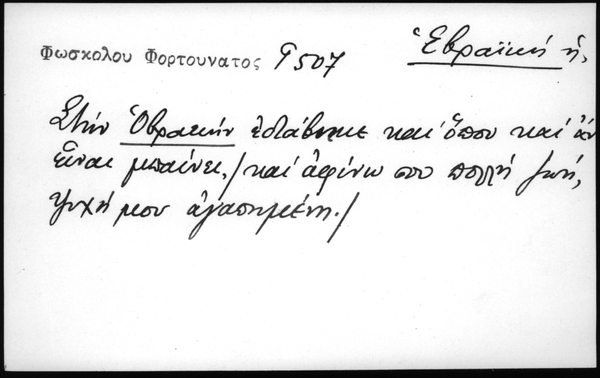 Φωσκολου Φορτουνατος Γ 507
Ἑβραϊκή ἡ,
Στήν Ὀβρακήν ἐδιάβηκε καί ὅπου καί ἄν
εἶναι μπαίνει,/ καί ἀφίνω σου πολλή ζωή,
ψυχή μου ἀγαπημένη./